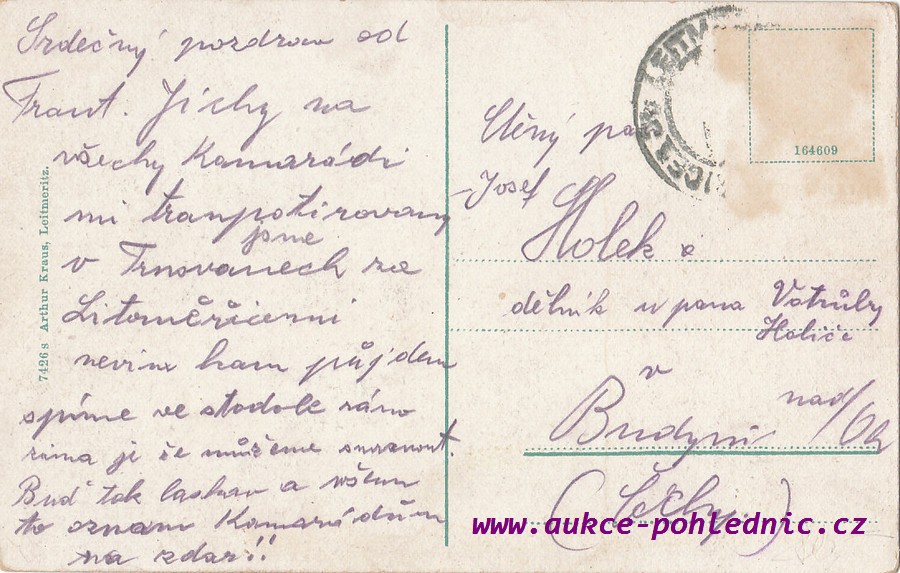 Srdečný pozdrav od
Frant. Jíchy na
všechy Kamarádi
mi tranpotirovany
jsme
v Trnovanech za
Litoměřicemi
nevíme kam půjdem
spíme ve stodole ráno
zima je že můžeme zmrznout.
Buď tak laskav a všem
to oznam Kamarádům
na zdar!!
7426 s Arthur Kraus, Leitmeritz.
164609
Ctěný pan
Josef
Holek
dělník u pana Votruby
Holiče
v
Budyni nad/Oh
(Čechy.)
www.aukce-pohlednic.cz